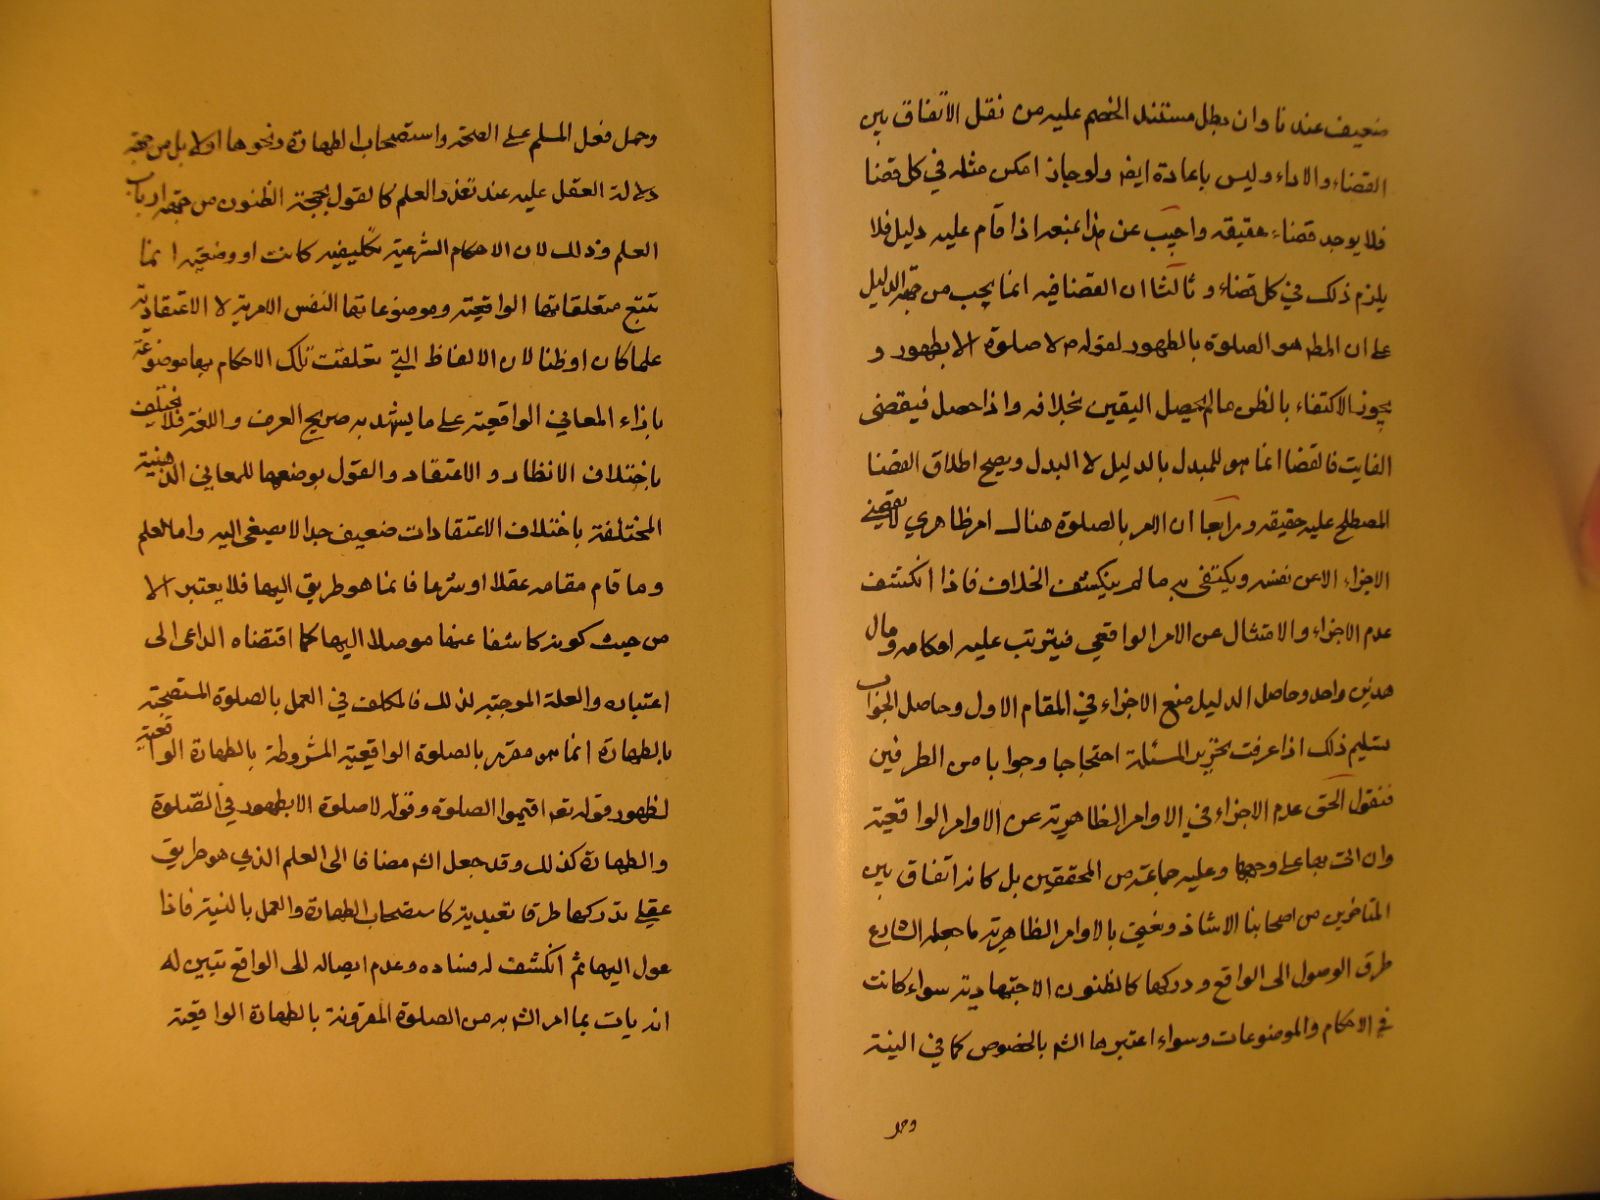 ضعيف عندنا وان بطل مستند الخصم عليه من نقل الاتفاق بين
القضاء والاداء وليس باعادة ايضا ولو جاز امكن مثله في كل قضا
فلا يوجد قضاء حقيقه واجيب عن هذا بمنعه اذا قام عليه دليل فلا
يلزم ذلك في كل قضاء وثالثا ان القضا فيه انما يجب من جهة الدليل
على ان المط هو الصلوة بالطهور لقوله ص لا صلوة الا بطهور و
يجوز الاكتفاء بالظن ما لم يحصل اليقين بخلافه واذا حصل فيقضى
الفايت فالقضا انما هو للمبدل بالدليل لا البدل ويصح اطلاق القضا
المصطلح عليه حقيقه ورابعا ان الامر بالصلوة هناك امر ظاهري لا يقضي
الاجزاء الا عن نفسه ويكتفى به ما لم ينكشف الخلاف فاذا انكشف
عدم الاجزاء والامتثال عن الامر الواقعي فيترتب عليه احكامه ومال
هذين واحد وحاصل الدليل منع الاجزاء في المقام الاول وحاصل الجواب
تسليم ذلك اذا عرفت تحرير المسئلة احتجاجا وجوابا من الطرفين
فنقول الحق عدم الاجزاء في الاوامر الظاهرية عن الاوامر الواقعية
وان اتى بها على وجهها وعليه جماعة من المحققين بل كانه اتفاق بين
المتاخرين من اصحابنا الا شاذ ونعني بالاوامر الظاهرية ما جعله الشارع
طرق الوصول الى الواقع ودركها كالظنون الاجتهادية سواء كانت
في الاحكام والموضوعات وسواء اعتبرها الشم بالخصوص كما في البينة
وحمل
وحمل فعل المسلم على الصحة واستصحاب الطهارة ونحوها اولا بل من جهة
دلالة العقل عليه عند تعذر العلم كما نقول بحجية الظنون من جهة ارباب
العلم وذلك لان الاحكام الشرعية تكليفيه كانت او وضعيه انما
تتبع متعلقاتها الواقعية وموضوعاتها النفس الامرية لا الاعتقادية
علما كان او ظنا لان الالفاظ التي تعلقت تلك الاحكام بها موضوعة
بازاء المعاني الواقعية على ما يشهد به صريح العرف واللغة فلا يختلف
باختلاف الانظار والاعتقاد والقول بوضعها للمعاني الذهنية
المختلفة باختلاف الاعتقادات ضعيف جدا لا يصغى اليه واما العلم
وما قام مقامه عقلا او شرعا فانما هو طريق اليها فلا يعتبر الا
من حيث كونه كاشفا عنها موصلا اليها كما اقتضاه الداعى الى
اعتباره والعلة الموجبة لذلك فالمكلف في العمل بالصلوة المستصحبة
بالطهارة انما هو مقر بالصلوة الواقعية المشروطة بالطهارة الواقعية
لظهور قوله تعـ اقيموا الصلوة وقوله لا صلوة الا بطهور في الصلوة
والطهارة كذلك وقد جعل الشم مضافا الى العلم الذي هو طريق
عقلي بدركها طرقا تعبدية كاستصحاب الطهارة والعمل بالبينة فاذا
عول اليها ثم انكشف له فساده وعدم ايصاله الى الواقع تبين له
انه يات بما امر الشم به من الصلوة المقرونة بالطهارة الواقعية